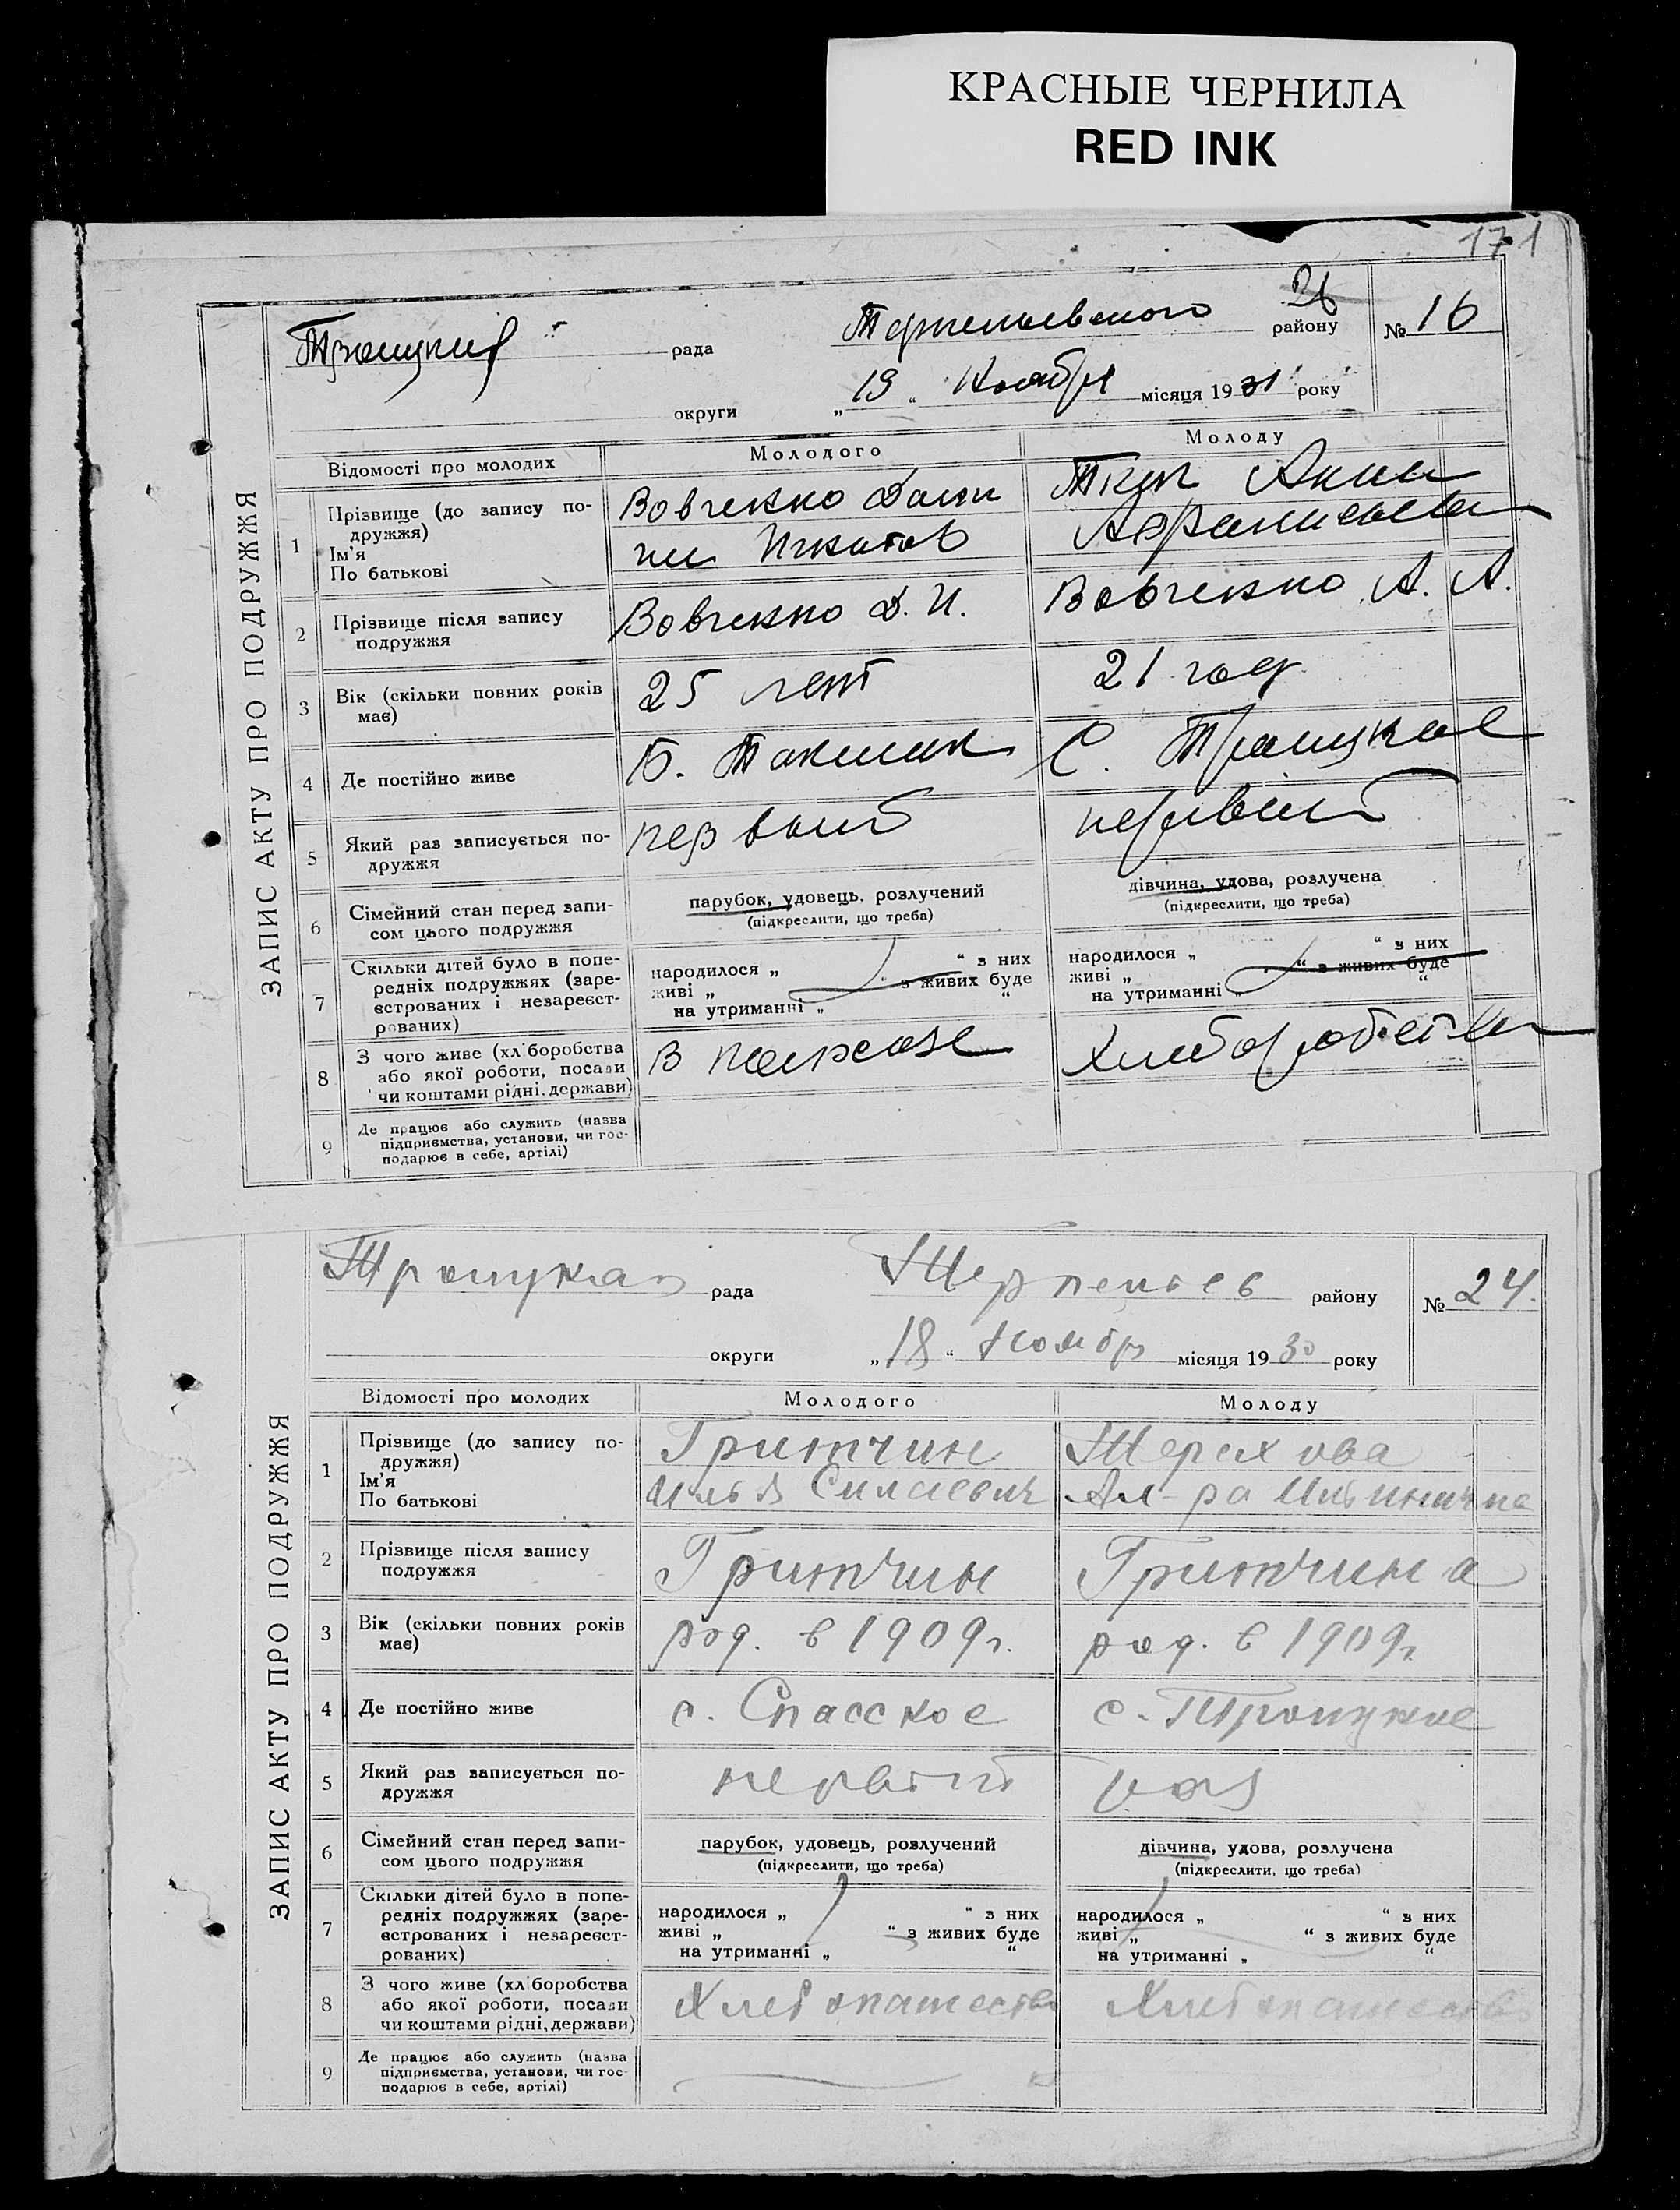 КРАСНЫЕ ЧЕРНИЛА
RED INK
171
26
рада района
№ 16
району
округи „19“ Ноября місяця 1931 року
ЗАПИС АКТУ ПРО ПОДРУЖЖЯ
Відомості про молодих Молодого Молоду
1 Прізвище (до запису подружжя)
Ім'я
По батькові
Вовченко
Ткач Анна
2 Прізвище після запису подружжя
Вовченко Д. И.
Вовченко А. А.
3 Вік (скільки повних років має)
25 лет
21 год
4 Де постійно живе
Б. Токмак
С. Троицкое
5 Який раз записується подружжя
первый
первый
6 Сімейний стан перед записом цього подружжя
парубок, удовець, розлучений
(підкреслити, що треба)
дівчина, удова, розлучена
(підкреслити, що треба)
7 Скільки дітей було в попередніх подружжях (зареєстрованих і незареєстрованих)
народилося „ “ з них
живі „ “ з живих буде
на утриманні „ “
народилося „ “ з них
живі „ “ з живих буде
на утриманні „ “
8 З чого живе (хліборобства або якої роботи, посади чи коштами рідні, держави)
9 Де працює або служить (назва підприємства, установи, чи господарює в себе, артілі)
Троицкая рада Терпеньев району № 24.
округи „18“ Ноябр місяця 1930 року
ЗАПИС АКТУ ПРО ПОДРУЖЖЯ
Відомості про молодих Молодого Молоду
1 Прізвище (до запису подружжя)
Ім'я
По батькові
Гритчин
Илья Силаевич
Терехова
Ал-ра
2 Прізвище після запису подружжя
Гритчин
Гритчина
3 Вік (скільки повних років має)
род. в 1909 г.
род. в 1909 г.
4 Де постійно живе
с. Спасское
с. Троицкое
5 Який раз записується подружжя
первый раз
6 Сімейний стан перед записом цього подружжя
парубок, удовець, розлучений
(підкреслити, що треба)
дівчина, удова, розлучена
(підкреслити, що треба)
7 Скільки дітей було в попередніх подружжях (зареєстрованих і незареєстрованих)
народилося „ “ з них
живі „ “ з живих буде
на утриманні „ “
народилося „ “ з них
живі „ “ з живих буде
на утриманні „ “
8 З чого живе (хліборобства або якої роботи, посади чи коштами рідні, держави)
Хлебопашество
Хлебопашество
9 Де працює або служить (назва підприємства, установи, чи господарює в себе, артілі)